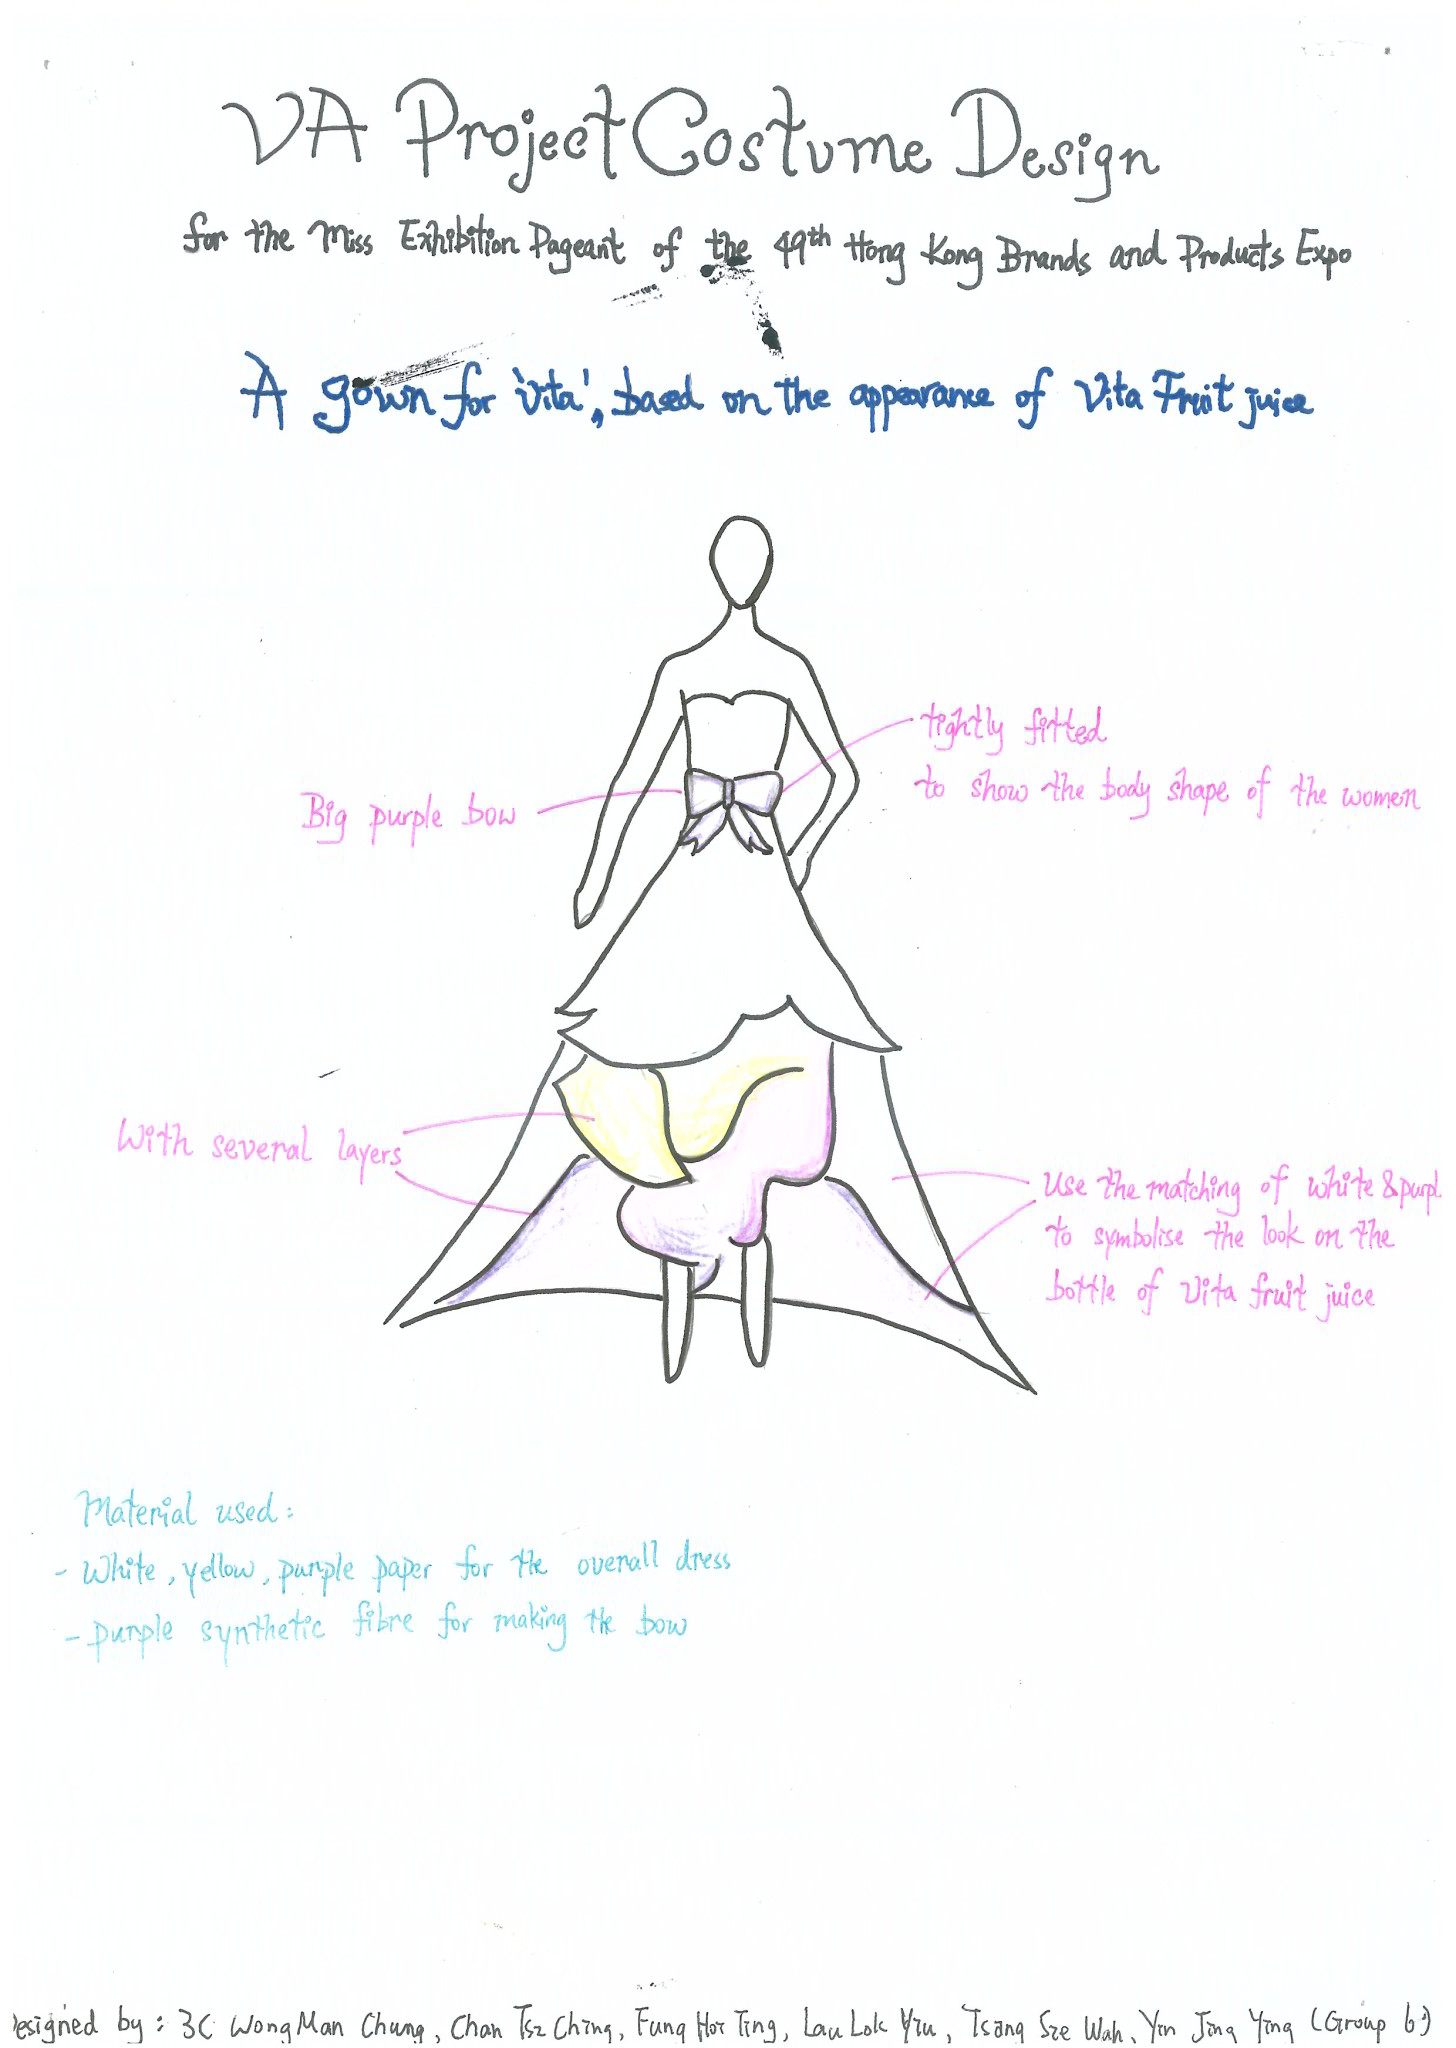 VA Project Costume Design
for the Miss Exhibition Pageant of the 49th Hong Kong Brands and Products Expo
A gown for 'Vita', based on the appearance of Vita Fruit juice
tightly fitted
to show the body shape of the women
Big purple bow
With several layers
Use the matching of white & purpl
to symbolise the look on the
bottle of Vita fruit juice
Material used:
- White, yellow, purple paper for the overall dress
- purple synthetic fibre for making the bow
esigned by: 3C Wong Man Chung, Chan Tsz Ching, Fung Hoi Ting, Lau Lok Yiu, Tsang Sze Wah, Yin Jing Ying (Group 6)